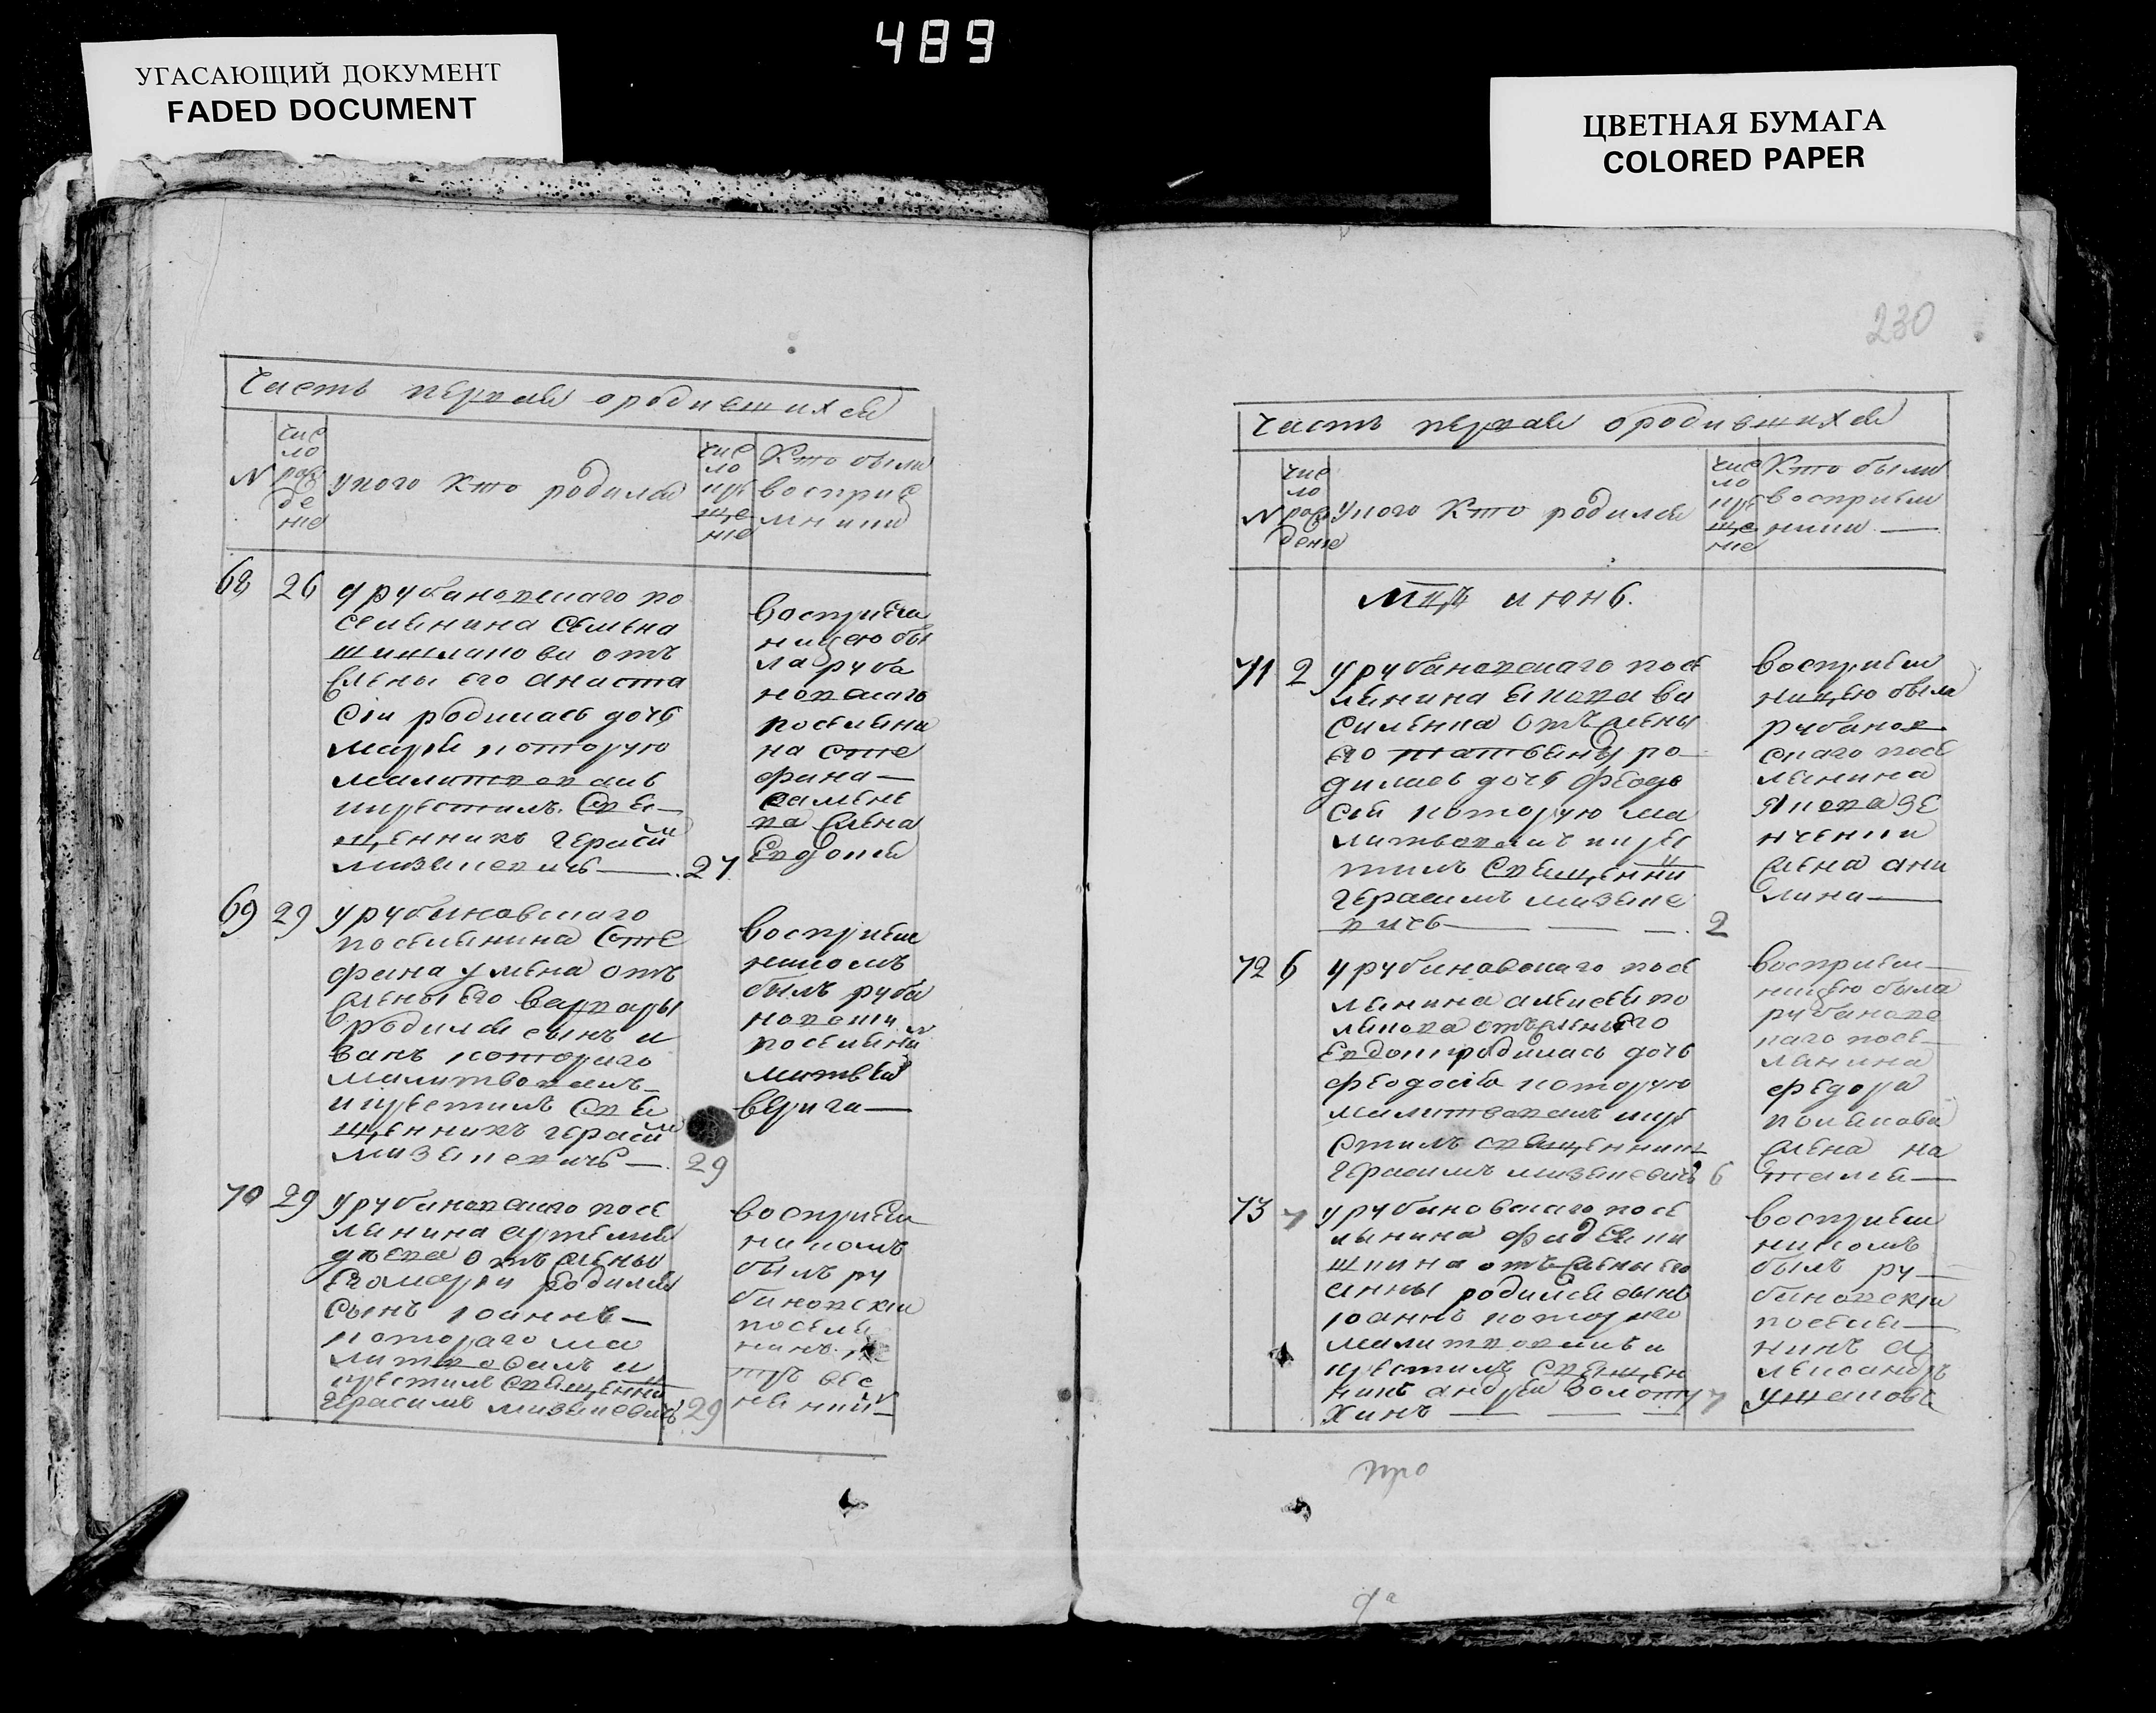 489
УГАСАЮЩИЙ ДОКУМЕНТ
FADED DOCUMENT
ЦВЕТНАЯ БУМАГА
COLORED PAPER
230
Часть первая о родившихся
N
чис
ло
рож
де
ние
У кого кто родился
чис
ло
кре
ще
ние
Кто были
восприе
мники
68 26
У рубановскаго по
селянина Семена
отъ
жены его Анаста
сіи родилась дочь
Марія которую
малитвовалъ
и крестилъ Свя
щенникъ Герасим
27
восприем
ницею бы
ла руба
новскаго
поселяни
на Сте
фана
жена
Евдокия
69 29
У рубановскаго
поселянина Сте
фана отъ
жены его Варвары
родился сынъ и
ванъ котораго
малитвовалъ
и крестилъ Свя
щенникъ Герасим
29
восприем
никомъ
былъ руба
новски
поселянин
Матвей
Верига
70 29
У рубановскаго посе
лянина Артемия
отъ жены
его Марии родился
сынъ Іоаннъ
котораго ма
литвовалъ и
крестилъ Священни
Герасимъ
29
восприем
никомъ
былъ ру
бановски
поселя
нинъ
Часть первая о родившихся
N
чис
ло
рож
дение
У кого кто родился
чис
ло
кре
ще
ние
Кто были
восприем
ники
Мцъ июнь.
71 2
У рубановскаго посе
лянина Якова Ва
силенка отъ жены
его Татьяны ро
дилась дочь Феодо
сия которую ма
литвовалъ и крес
тилъ Священни
Герасимъ
2
восприем
ницею была
рубанов
скаго посе
лянина
Якова Зе
нченки
жена Аки
лина
72 6
У рубановскаго посе
лянина Алексея По
лякова отъ жены его
Евдокии родилась дочь
Феодосія которую
малитвовалъ и кре
стилъ священник
Герасимъ
6
восприем
ницею была
рубановс
каго посе
лянина
Федора
Полякова
жена На
талия
73 7
У рубановскаго посе
лянина
отъ жены его
Анны родился сынъ
Іоаннъ котораго
малитвовалъ и
крестилъ Священ
никъ Андрей Золоту
хинъ
7
восприем
никомъ
былъ ру
бановски
поселя
нинъ А
лександръ
про